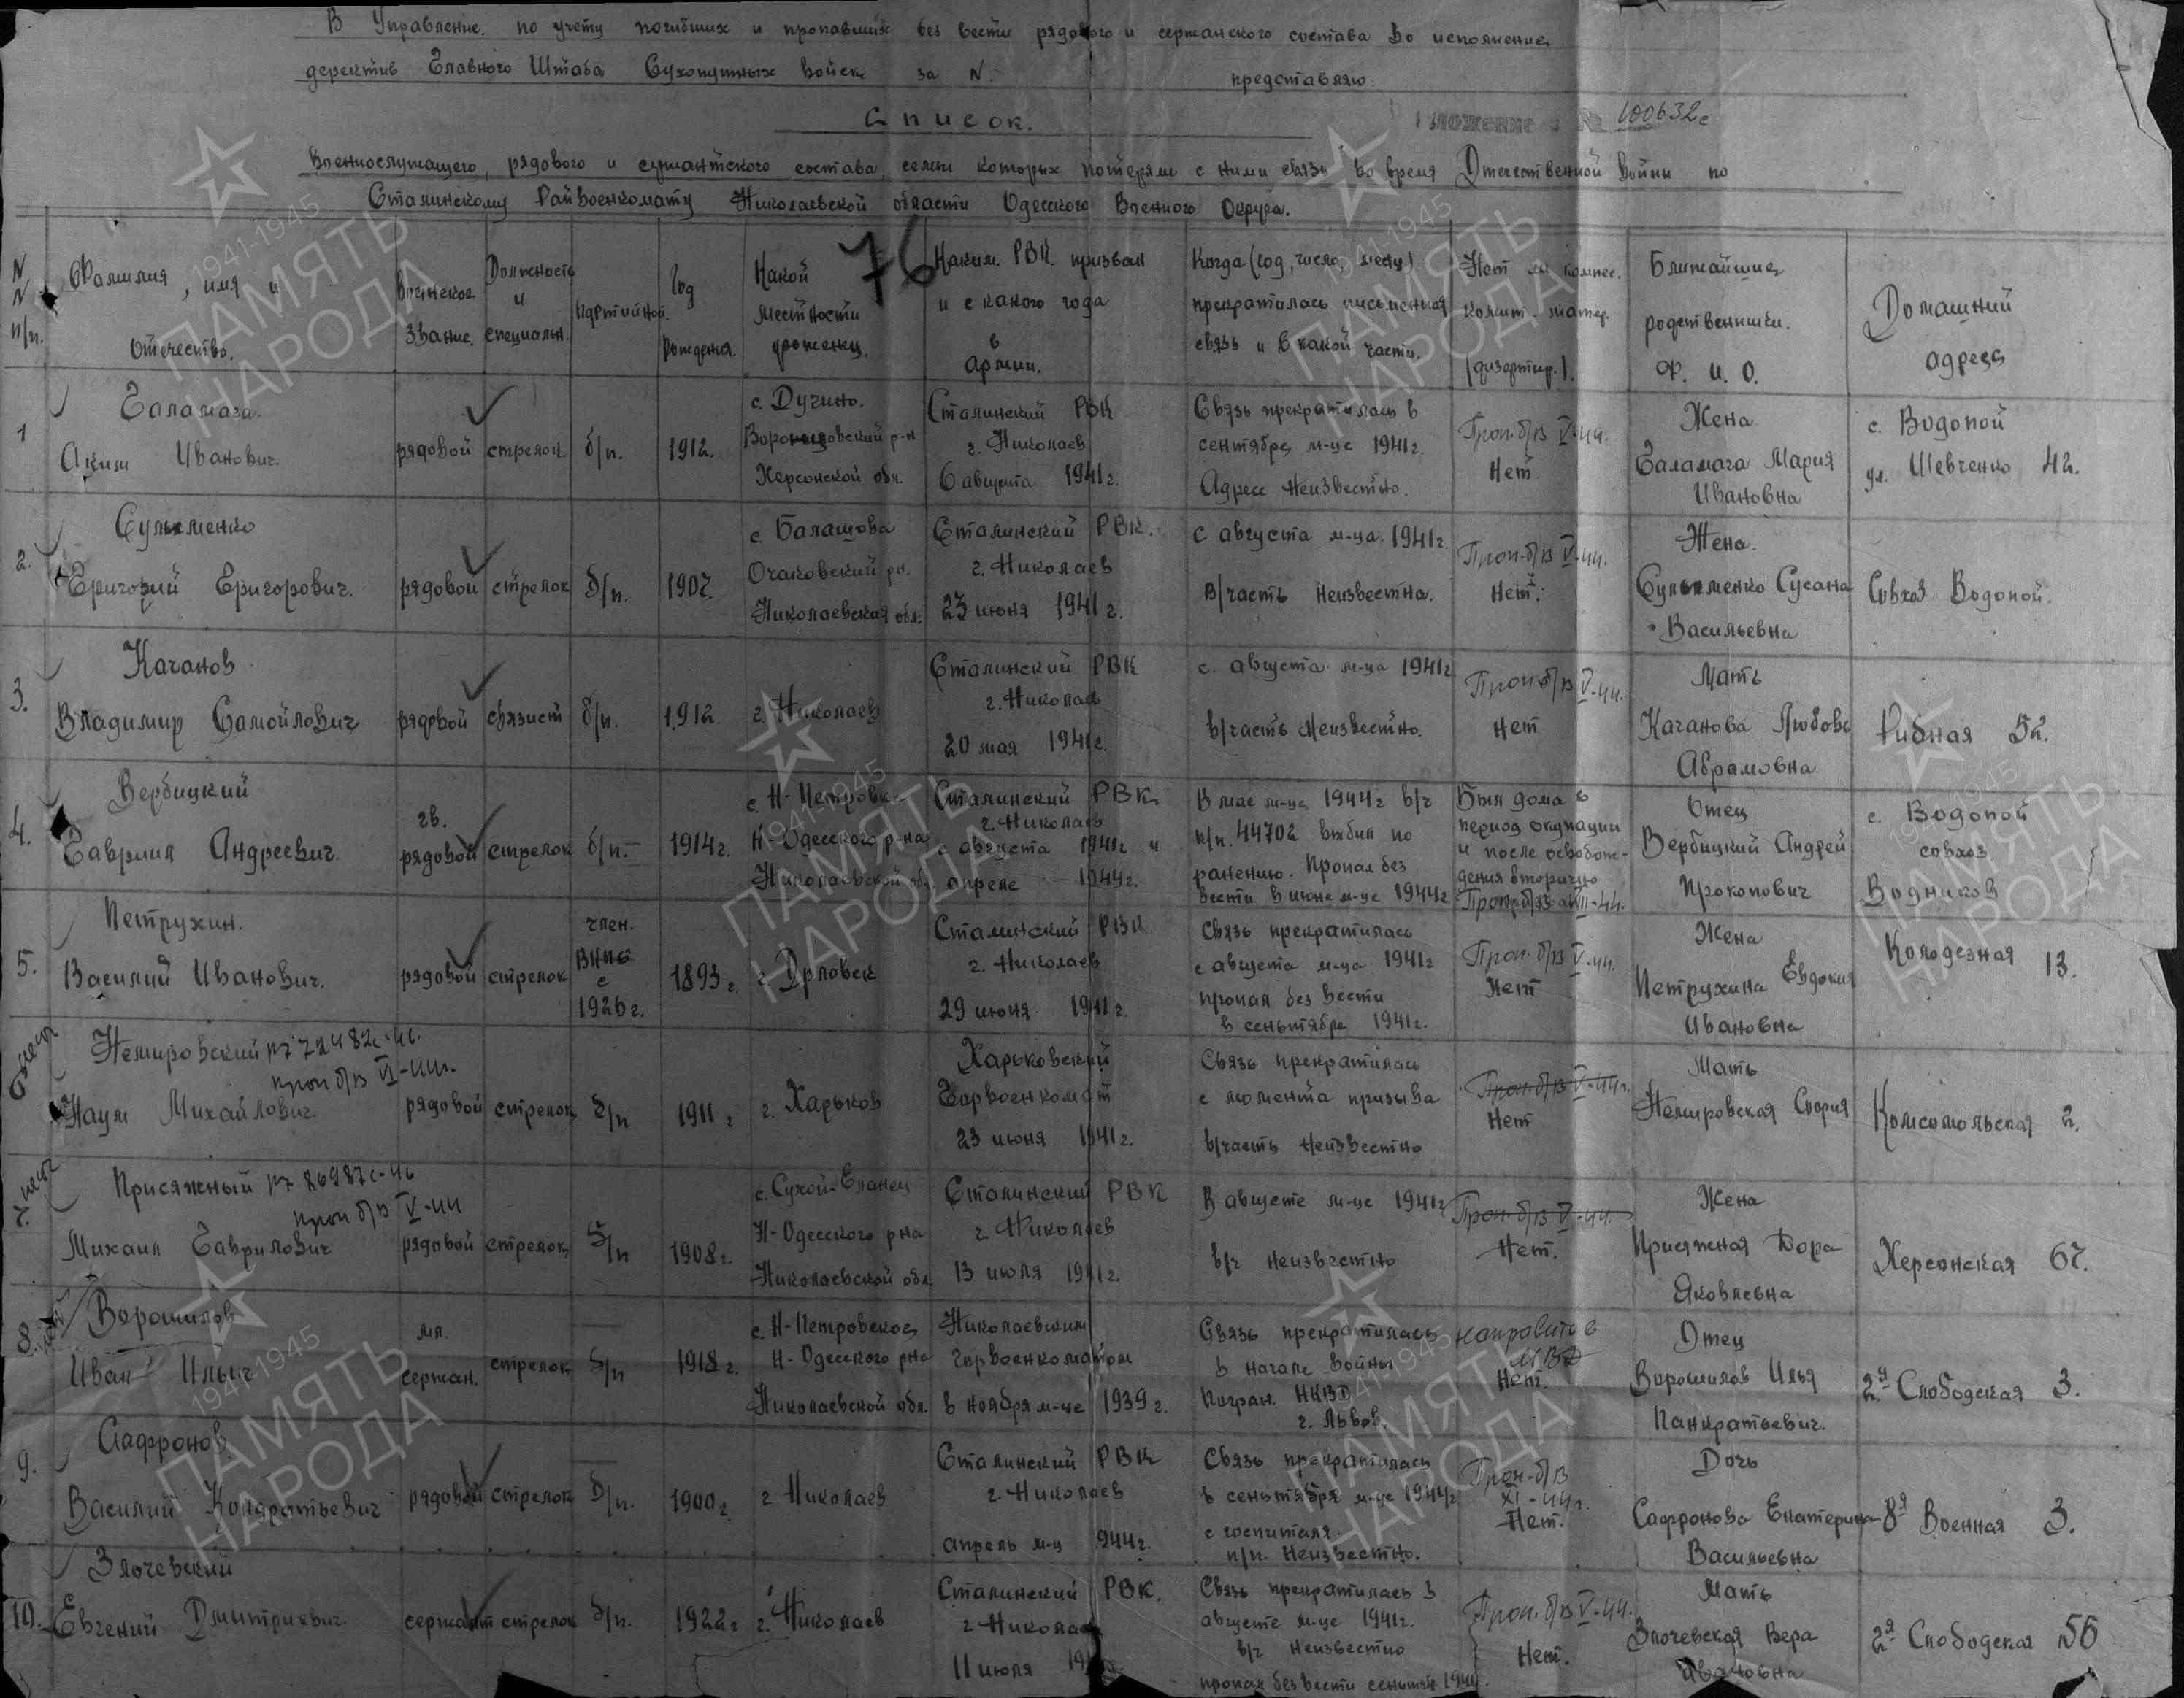 В Управление по учету погибших и пропавших без вести рядового и сержанского состава Во исполнение
деректив Главного Штаба Сухопутных войск за N. представляю.
Список.
100632с
Военнослужащего, рядового и сержантского состава, семьи которых потеряли с ними связь во время Отечественной Войны по
Сталинскому Райвоенкомату Николаевской области Одесского Военного Округа.
76
N N п/п.
Фамилия, имя и Отечество.
Воинское звание.
Должность и специальн.
Партийной.
Год рождения.
Какой местности уроженец.
Каким РВК призван и с какого года в армии.
Когда (год, число, месяц) прекратилась письменная связь и в какой части.
Нет ли компес. матер. (дизертир.).
Ближайшие родственники. Ф. И. О.
Домашний адрес
1
Галамага.
Аким Иванович.
рядовой
стрелок
б/п.
1912.
с. Дучино.
Воронцовский р-н
Херсонской обл.
Сталинский РВК
г. Николаев
6 августа 1941г.
Связь прекратилась в
сентябре м-це 1941г.
Адресс Неизвестно.
Проп. б/в V-44.
Нет
Жена
Галамага Мария
Ивановна
с. Водопой
ул. Шевченко 42.
2.
Сульменко
Григорий Григорович.
рядовой
стрелок
б/п.
1907.
с. Балашова
Очаковский рн.
Николаевская обл.
Сталинский РВК.
г. Николаев
23 июня 1941г.
С августа м-ца 1941г.
в/часть Неизвестна.
Проп. б/в V-44.
Нет.
Жена.
Сульменко Сусана
Васильевна
Совхоз Водопой.
3.
Качанов
Владимир Самойлович
рядовой
связист
б/п.
1912
г. Николаев
Сталинский РВК
г. Николаев
20 мая 1941г.
с. августа м-ца 1941г
в/часть Неизвестно.
Проп б/в V-44.
Нет
Мать
Качанова Любовь
Абрамовна
Рибная 52.
4.
Вербицкий
Гавриил Андреевич.
гв.
рядовой
стрелок
б/п.
1914г.
с. Н-Петровка
Н-Одесского р-на
Николаевской обл.
Сталинский РВК.
г. Николаев
с августа 1941г и
апреле 1944г.
В мае м-це 1944г в/ч
п/п. 44702 выбил по
ранению. Пропал без
вести в июне м-це 1944г
Был дома в
период окупации
и после освобож-
дения вторично
Проп. б/в VIII-44.
Отец
Вербицкий Андрей
Прокопович
с. Водопой
совхоз
Водников
5.
Петрухин.
Василий Иванович.
рядовой
стрелок
член.
ВКПб
с
1926г.
1893г.
г. Орловск
Сталинский РВК
г. Николаев
29 июня 1941г.
Связь прекратилась
с августа м-ца 1941г
пропал без вести
в сеньтябре 1941г.
Проп. б/в V-44.
Нет
Жена
Петрухина Евдокия
Ивановна
Колодезная 13.
6
Немировский 72482с-46.
проп б/в VI-44г.
Наум Михайлович.
рядовой
стрелок
б/п
1911г
г. Харьков
Харьковский
Горвоенкомат
23 июня 1941г.
Связь прекратилась
с момента призыва
в/часть Неизвестно
Проп. б/в V-44г.
Нет
Мать
Немировская София
Комсомольская 2.
7.
Присяжный 86987с-46
проп б/в V-44
Михаил Гаврилович
рядовой
стрелок
б/п
1908г.
с. Сухой-Еланец
Н-Одесского рна
Николаевской обл.
Сталинский РВК
г. Николаев
13 июля 1941г.
В августе м-це 1941г
в/ч Неизвестно
Проп. б/в V-44.
Нет.
Жена
Присяжная Дора
Яковлевна
Херсонская 67.
8.
Ворошилов
Иван Ильич
мл.
сержан.
стрелок
б/п
1918г.
с. Н-Петровское
Н-Одесского рна
Николаевской обл.
Николаевским
Горвоенкоматом
в ноябрям-це 1939г.
Связь прекратилась
в начале войны
Погран. НКВД
г. Львов.
направить в
МВД
Нет.
Отец
Ворошилов Илья
Панкратьевич.
2я Слободская 3.
9.
Сафронов
Василий Кондратьевич
рядовой
стрелок
б/п.
1900г.
г Николаев
Сталинский РВК
г. Николаев
апрель м-ц 944г.
Связь прекратилась
в сеньтября м-це 1944г
с госпиталя.
п/п. Неизвестно.
Проп. б/в
XI-44г.
Нет.
Дочь
Сафронова Екатерина
Васильевна
8я Военная 3.
10.
Злочевский
Евгений Дмитриевич.
сержант
стрелок
б/п.
1922г
г. Николаев
Сталинский РВК.
г Николаев
11 июля
Связь прекратилась в
августе м-це 1941г.
в/ч Неизвестно
пропал без вести сеньтяб 1941.
Проп. б/в V-44.
Нет.
Мать
Злочевская Вера
Ивановна
2я Слободская 56
1941-1945
ПАМЯТЬ
НАРОДА